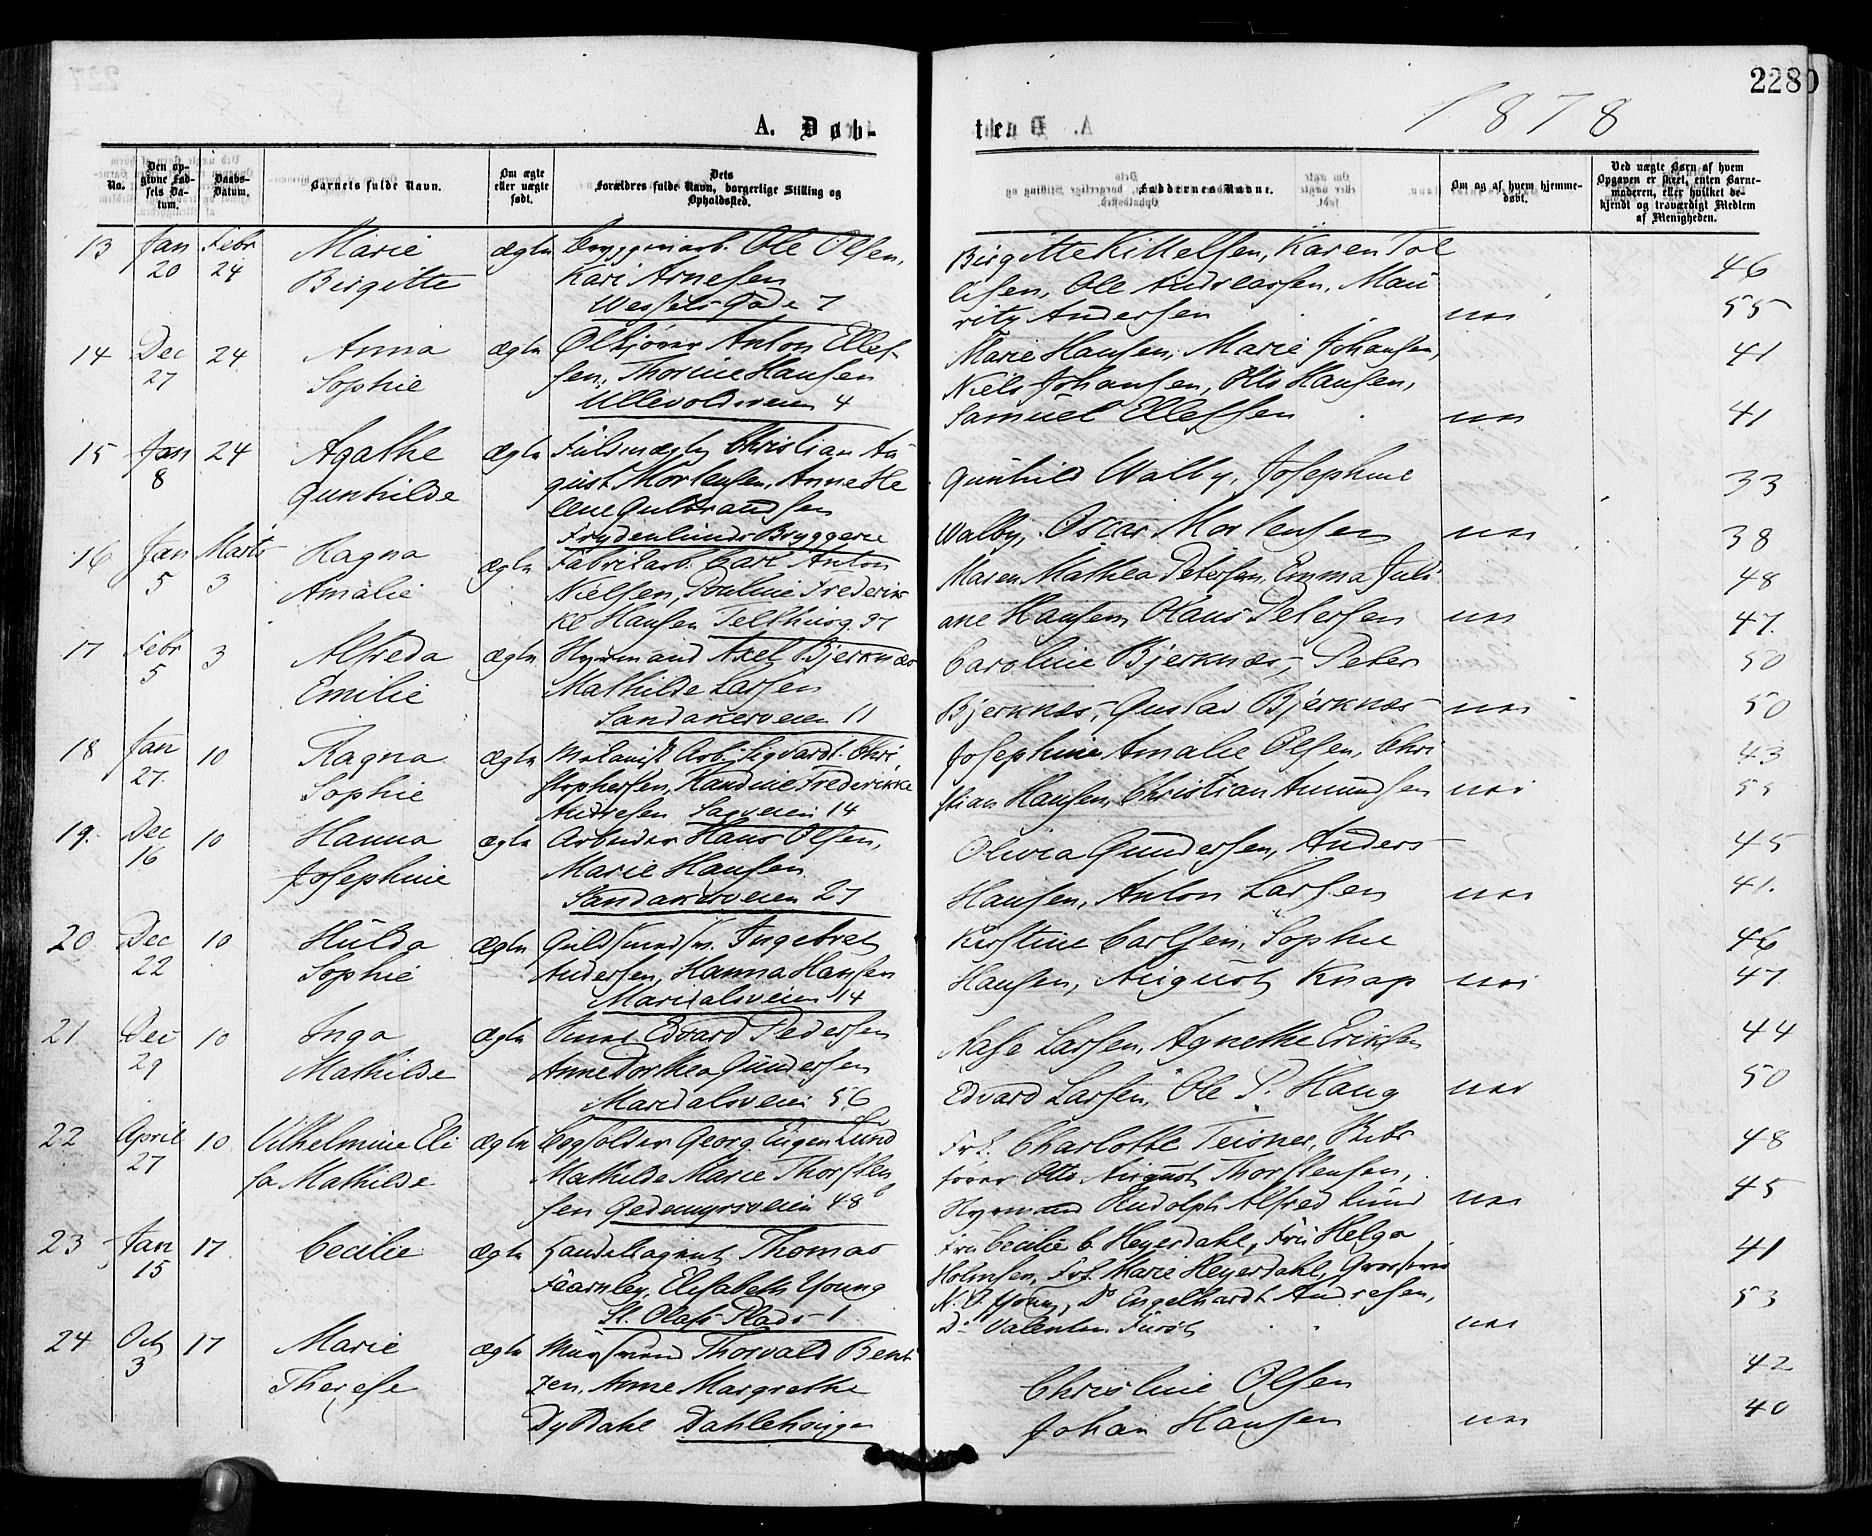 2280
1878
A. Døb-
te.
No.
Den opgivne Fødsels Datum.
Daabs-Datum.
Barnets fulde Navn.
Om ægte eller uægte født.
Dets Forældres fulde Navn, borgerlige Stilling og Opholdssted.
Faddernes Navne.
Om og af hvem hjemmedøbt.
Ved uægte Børn af hvem Opgaven er skeet, enten Barnemoderen, eller hvilket bekjendt og troværdigt Medlem af Menigheden.
13 Jan 20 Febr 24 Marie Birgitte ægte
Bryggeriarb. Ole Olsen,
Kari Arnesen
Wessels Gade 7
Birgitte Kittelsen, Karen Tol
lefsen, Ole Andreassen, Mau
ritz Andersen
46
55
14 Dec 27 24 Anna Sophie ægte
Ølkjører Anton Ellef
sen, Thorine Hansen
Ullevoldsveien 4
Marie Hansen, Marie Johansen,
Niels Johansen, Otto Hansen,
Samuel Ellefsen
41
41
15 Jan 8 24 Agathe Gunhilde ægte
Fuldmægtig Christian Au
gust Mortensen, Anne He
lene Gulbrandsen
Frydenlunds Bryggerie
Gunhild Walby, Josephine
Walby, Oscar Mortensen
33
38
16 Jan 5 Marts 3 Ragna Amalie ægte
Fabrikarb. Carl Anton
Nielsen, Pouline Frederik
ke Hansen Telthusg. 37
Maren Mathea Petersen, Emma Juli
ane Hansen, Klaus Petersen
48
47.
17 Febr 5 3 Alfreda Emilie ægte
Styrmand Axel Bjerknæs
Mathilde Larsen
Sandakerveien 11
Caroline Bjerknæs, Peter
Bjerknæs, Gustav Bjerknæs
50
50
18 Jan 27. 10 Ragna Sophie ægte
Mekanisk Arb. Sigvardt Chri
stophersen, Randine Frederikke
Andresen Sagveien 14
Josephine Amalie Olsen, Chri
stian Hansen, Christian Amundsen
43
55
19. Dec 16 10 Hanna Josephine ægte
Arbeider Hans Olsen,
Marie Hansen
Sandakerveien 27
Olivia Gundersen, Anders
Hansen, Anton Larsen
45
41.
20 Dec 22 10 Hulda Sophie ægte
Guldsmedsv. Ingebret
Andersen, Hanna Hansen
Maridalsveien 14
Kirstine Carlsen, Sophie
Hansen, August Knap
46
47
21 Dec 29 10 Inga Mathilde ægte
Edvard Pedersen
Anne Dorthea Gundersen
Maridalsveien 56
Aase Larsen, Agnethe Eriksen
Edvard Larsen, Ole P. Haug
44
50
22 April 27 10 Vilhelmine Eli
sa Mathilde ægte
Bogholder Georg Eugen Lund
Mathilde Marie Thorsten
sen Gedemyrsveien 48 b
Frk. Charlotte Teisner,
Otto August Thorstensen,
Styrmand Rudolph Alfred Lund
48
45
23 Jan 15 17 Cecilie ægte
Handelsagent Thomas
Fearnley, Elisabeth Young
St. Olafs Plads 1
Fru Cecilie C. Heyerdahl, Fru Helga
Holmsen, Frk. Marie Heyerdahl,
N. O. Young, Do Engelhardt Andresen,
Do Valentin Fürst
41
53
24 Oct 3 17 Marie Therese ægte
Muursvend Thorvald Bent
zen, Anne Margrethe
Dybdahl Dahlehaugen
Christine Olsen
Johan Hansen
42
40